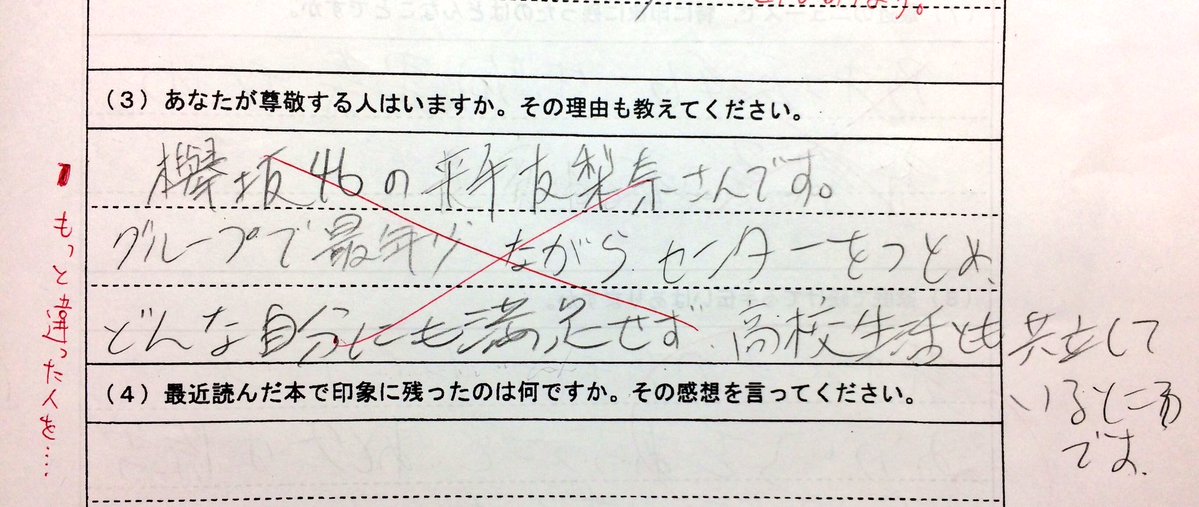 (3) あなたが尊敬する人はいますか。その理由も教えてください。
欅坂46の平手友梨奈さんです。
グループで最年少ながら、センターをつとめ、
どんな自分にも満足せず、高校生活とも共立して
いるところ
です。
(4) 最近読んだ本で印象に残ったのは何ですか。その感想を言ってください。
もっと違った人を……